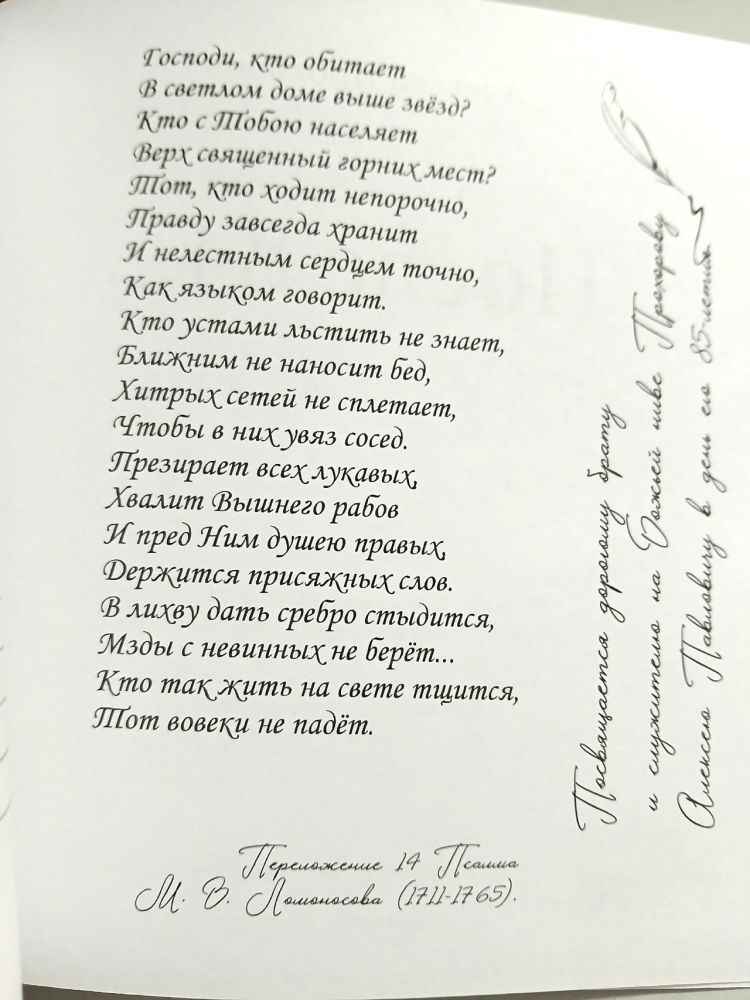 Господи, кто обитает
В светлом доме выше звёзд?
Кто с Тобою населяет
Верх священный горних мест?
Тот, кто ходит непорочно,
Правду завсегда хранит
И нелестным сердцем точно,
Как языком говорит.
Кто устами льстить не знает,
Ближним не наносит бед,
Хитрых сетей не сплетает,
Чтобы в них увяз сосед.
Презирает всех лукавых,
Хвалит Вышнего рабов
И пред Ним душею правых,
Держится присяжных слов.
В лихву дать сребро стыдится,
Мзды с невинных не берёт...
Кто так жить на свете тщится,
Тот вовеки не падёт.
Переложение 14 Псалма
М. В. Ломоносова (1711-1765).
Посвящается дорогому брату
и служителю на Божьей ниве Прохорову
Алексею Павловичу в день его 85-летия